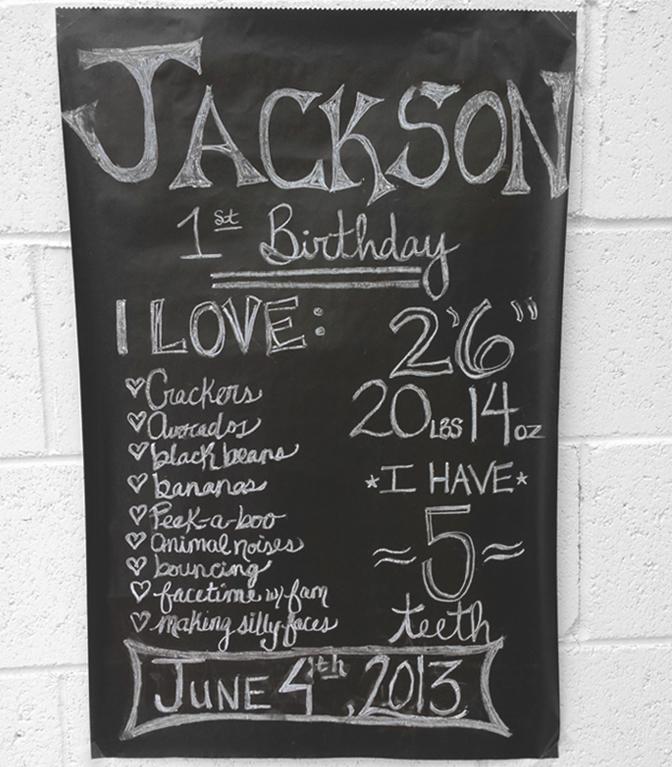 JACKSON
1st Birthday
I LOVE:
♡ Crackers
♡ Avocados
♡ black beans
♡ bananas
♡ Peek-a-boo
♡ animal noises
♡ bouncing
♡ facetime w/ fam
♡ making silly faces
2'6"
20 LBS 14 OZ
*I HAVE*
~5~
teeth
JUNE 4th, 2013